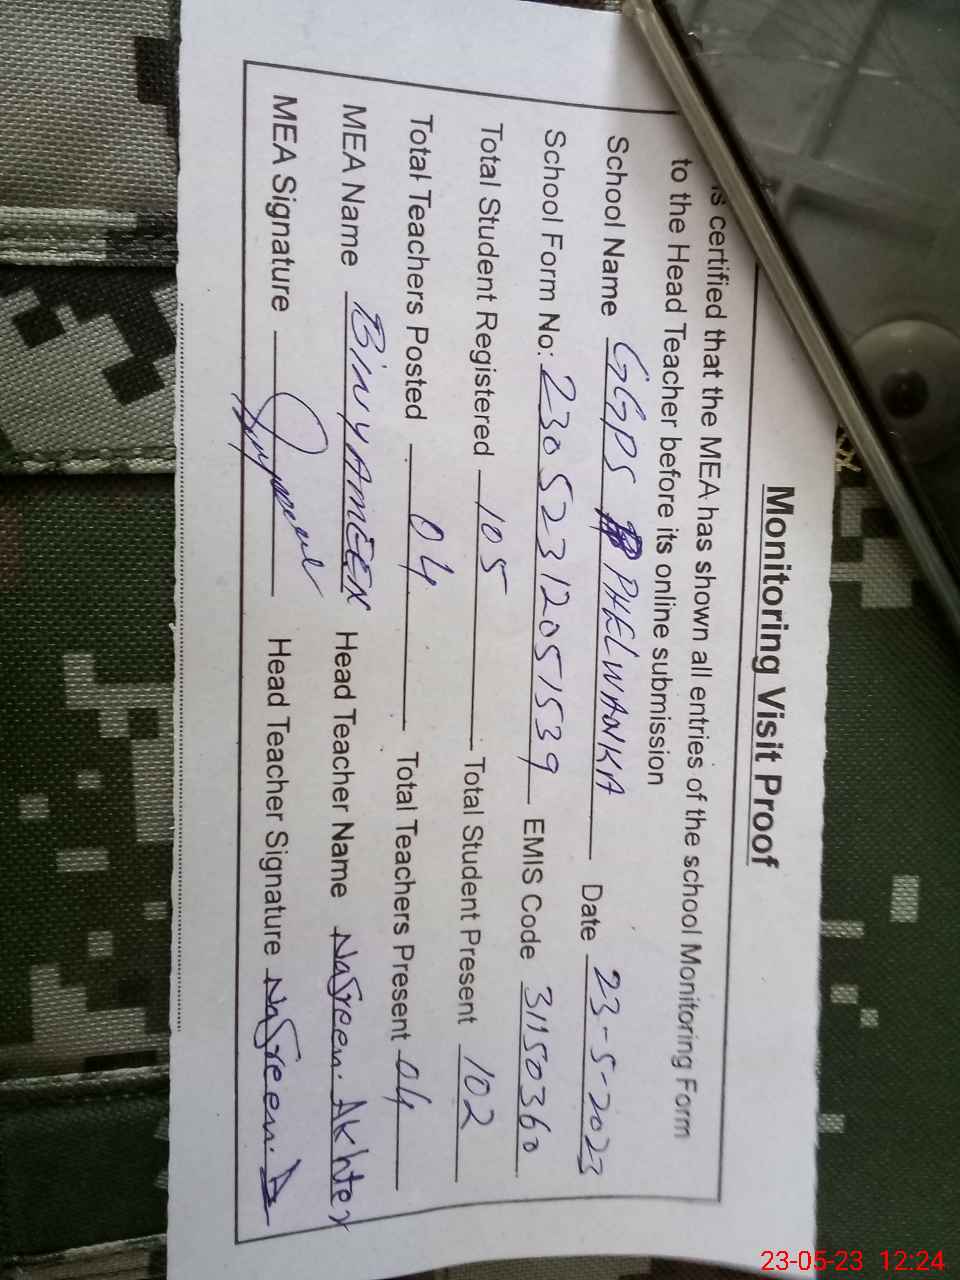 Monitoring Visit Proof
is certified that the MEA has shown all entries of the school Monitoring Form
to the Head Teacher before its online submission
School Name GGPS PHELWANKA Date 23-5-2023
School Form No: 23052312051539 EMIS Code 31150360
Total Student Registered 105 Total Student Present 102
Total Teachers Posted 04 Total Teachers Present 04
MEA Name BINYAMEEN Head Teacher Name Nasreen. Akhter
MEA Signature Head Teacher Signature Nasreen. A
23-05-23 12:24